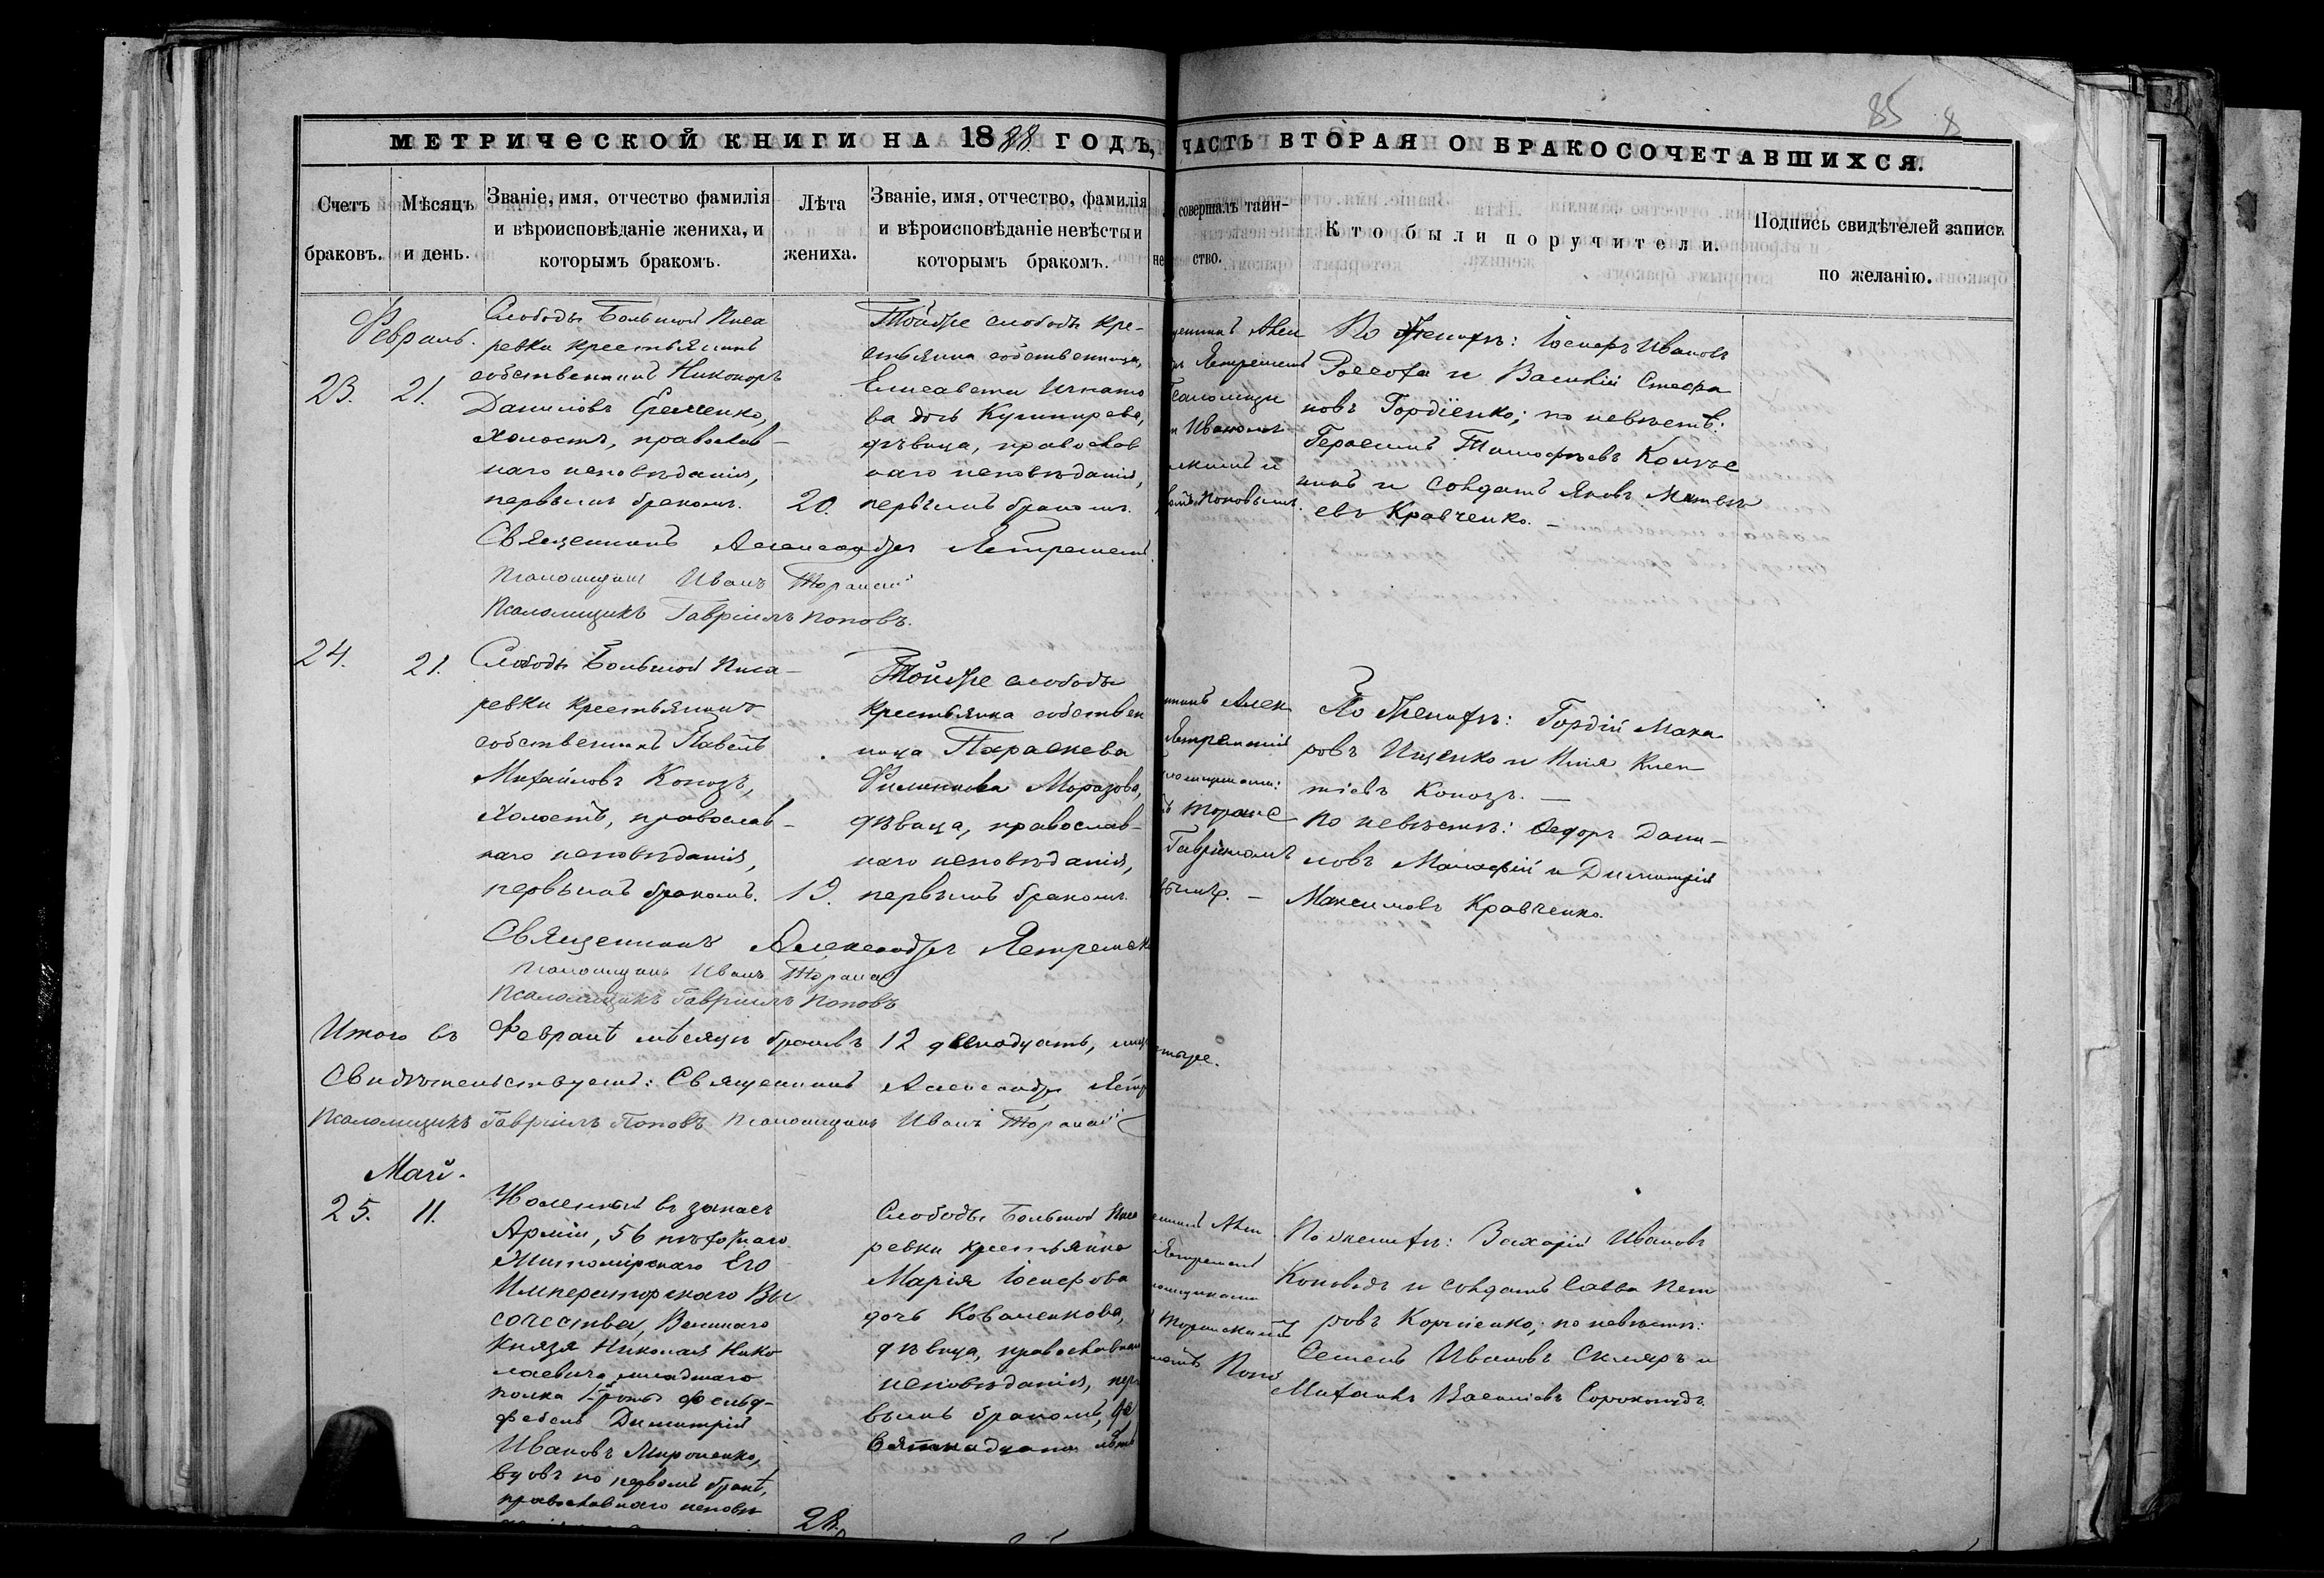 85 8
МЕТРИЧЕСКОЙ КНИГИ НА 1888 ГОДЪ, ЧАСТЬ ВТОРАЯ О БРАКОСОЧЕТАВШИХСЯ.
Счетъ
браковъ.
Мѣсяцъ
и день.
Званіе, имя, отчество фамилія
и вѣроисповѣданіе жениха, и
которымъ бракомъ.
Лѣта
жениха.
Званіе, имя, отчество, фамилія
и вѣроисповѣданіе невѣсты и
которымъ бракомъ.
не
совершалъ таин-
ство.
Кто были поручители.
Подпись свидѣтелей записи
по желанію.
Февраль.
23.
21.
Слободы Большой Писа
ревки крестьянинъ
собственникъ Никоноръ
Даниловъ Еременко,
холостъ, православ-
наго исповѣданія,
первымъ бракомъ.
20.
Тойже слободы кре-
стьянка собственница,
Елисавета Игнато
ва дочь
дѣвица, православ
наго исповѣданія,
первымъ бракомъ.
Ястремскій
Псаломщи
и Иваномъ
Поповымъ.
По женихѣ: Іосифъ Ивановъ
и Василій Стефа
новъ Гордіенко; по невѣстѣ:
Герасимъ Тимофѣевъ
и солдатъ Яковъ Матвѣ
евъ Кравченко. -
Священникъ Александръ Ястремскій
Псаломщикъ Иванъ Торанскій
Псаломщикъ Гавріилъ Поповъ.
24.
21.
Слободы Большой Писа-
ревки крестьянинъ
собственникъ Павелъ
Михайловъ Конозъ,
холостъ, православ-
наго исповѣданія,
первымъ бракомъ.
19.
Тойже слободы
крестьянка собствен
ница Параскева
Филиппова Морозова,
дѣвица, православ-
наго исповѣданія,
первымъ бракомъ.
никъ Алек
Ястремскій
Торанс
Гавріиломъ
вымъ. -
По женихѣ: Гордій Мака
ровъ Ищенко и Илія Клен
тіевъ Конозъ. -
По невѣстѣ: Ѳедоръ Дани-
ловъ Малафій и Димитрій
Максимовъ Кравченко.
Священникъ Александръ Ястремск
Псаломщикъ Иванъ Торанск
Псаломщикъ Гавріилъ Поповъ
Итого въ Февралѣ мѣсяцѣ браковъ 12 двенадцать,
Свидѣтельствуемъ: Священникъ Александръ Ястр
Псаломщикъ Гавріилъ Поповъ Псаломщикъ Иванъ Торанскій
Май.
25.
11.
Уволенный въ запасъ
Арміи, 56 пѣхотнаго
Житомірскаго Его
Императорскаго Вы
сочества, Великаго
Князя Николая Нико
лаевича младшаго
полка 1й роты фельд-
фебель Димитрій
Ивановъ Мироненко,
вдовъ по первомъ бракѣ,
православнаго исповѣ
28.
Слободы Большой Писа
ревки крестьянка
Марія Іосифова
дочь Коваленкова,
дѣвица, православнаго
исповѣданія, пер
вымъ бракомъ, де
вятнадцати лѣтъ
Ястремскій
Торанскимъ
Попо
По женихѣ: Захарій Ивановъ
Коновадъ и солдатъ Савва Пет
ровъ Корніенко; по невѣстѣ:
Семенъ Ивановъ Скляръ и
Михаилъ Василіевъ